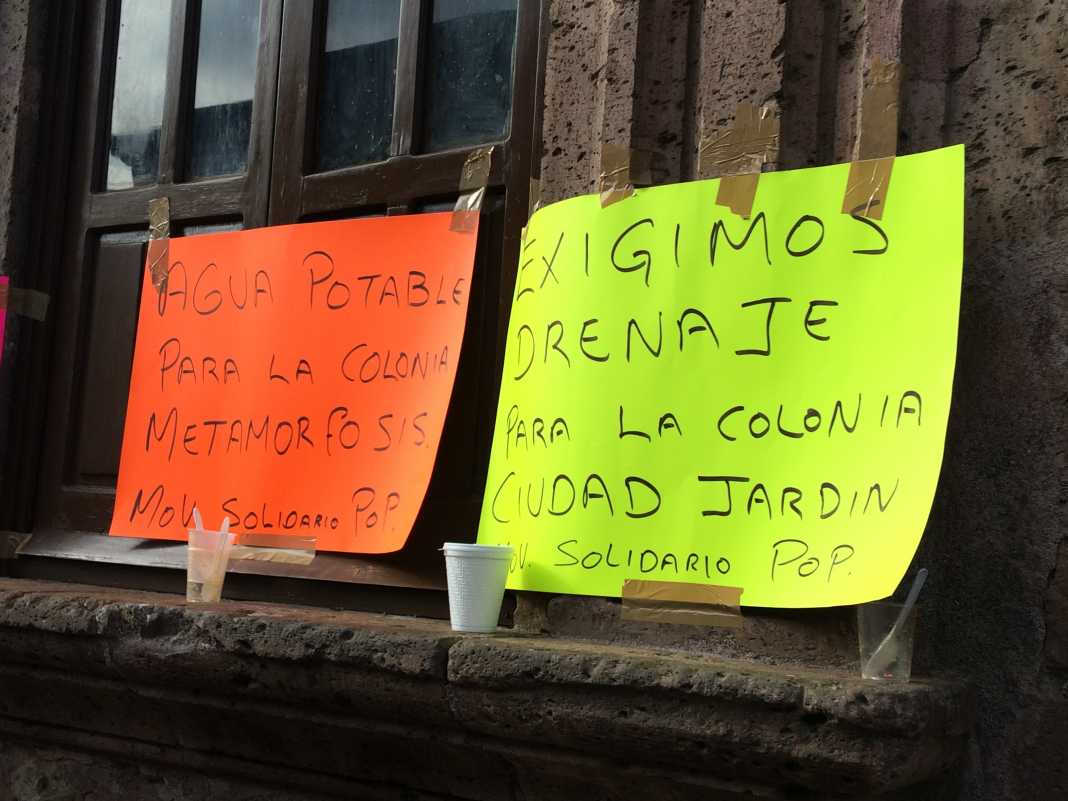 AGUA POTABLE
PARA LA COLONIA
METAMORFOSIS.
MOV. SOLIDARIO POP.
EXIGIMOS
DRENAJE
PARA LA COLONIA
CIUDAD JARDIN
MOV. SOLIDARIO POP.